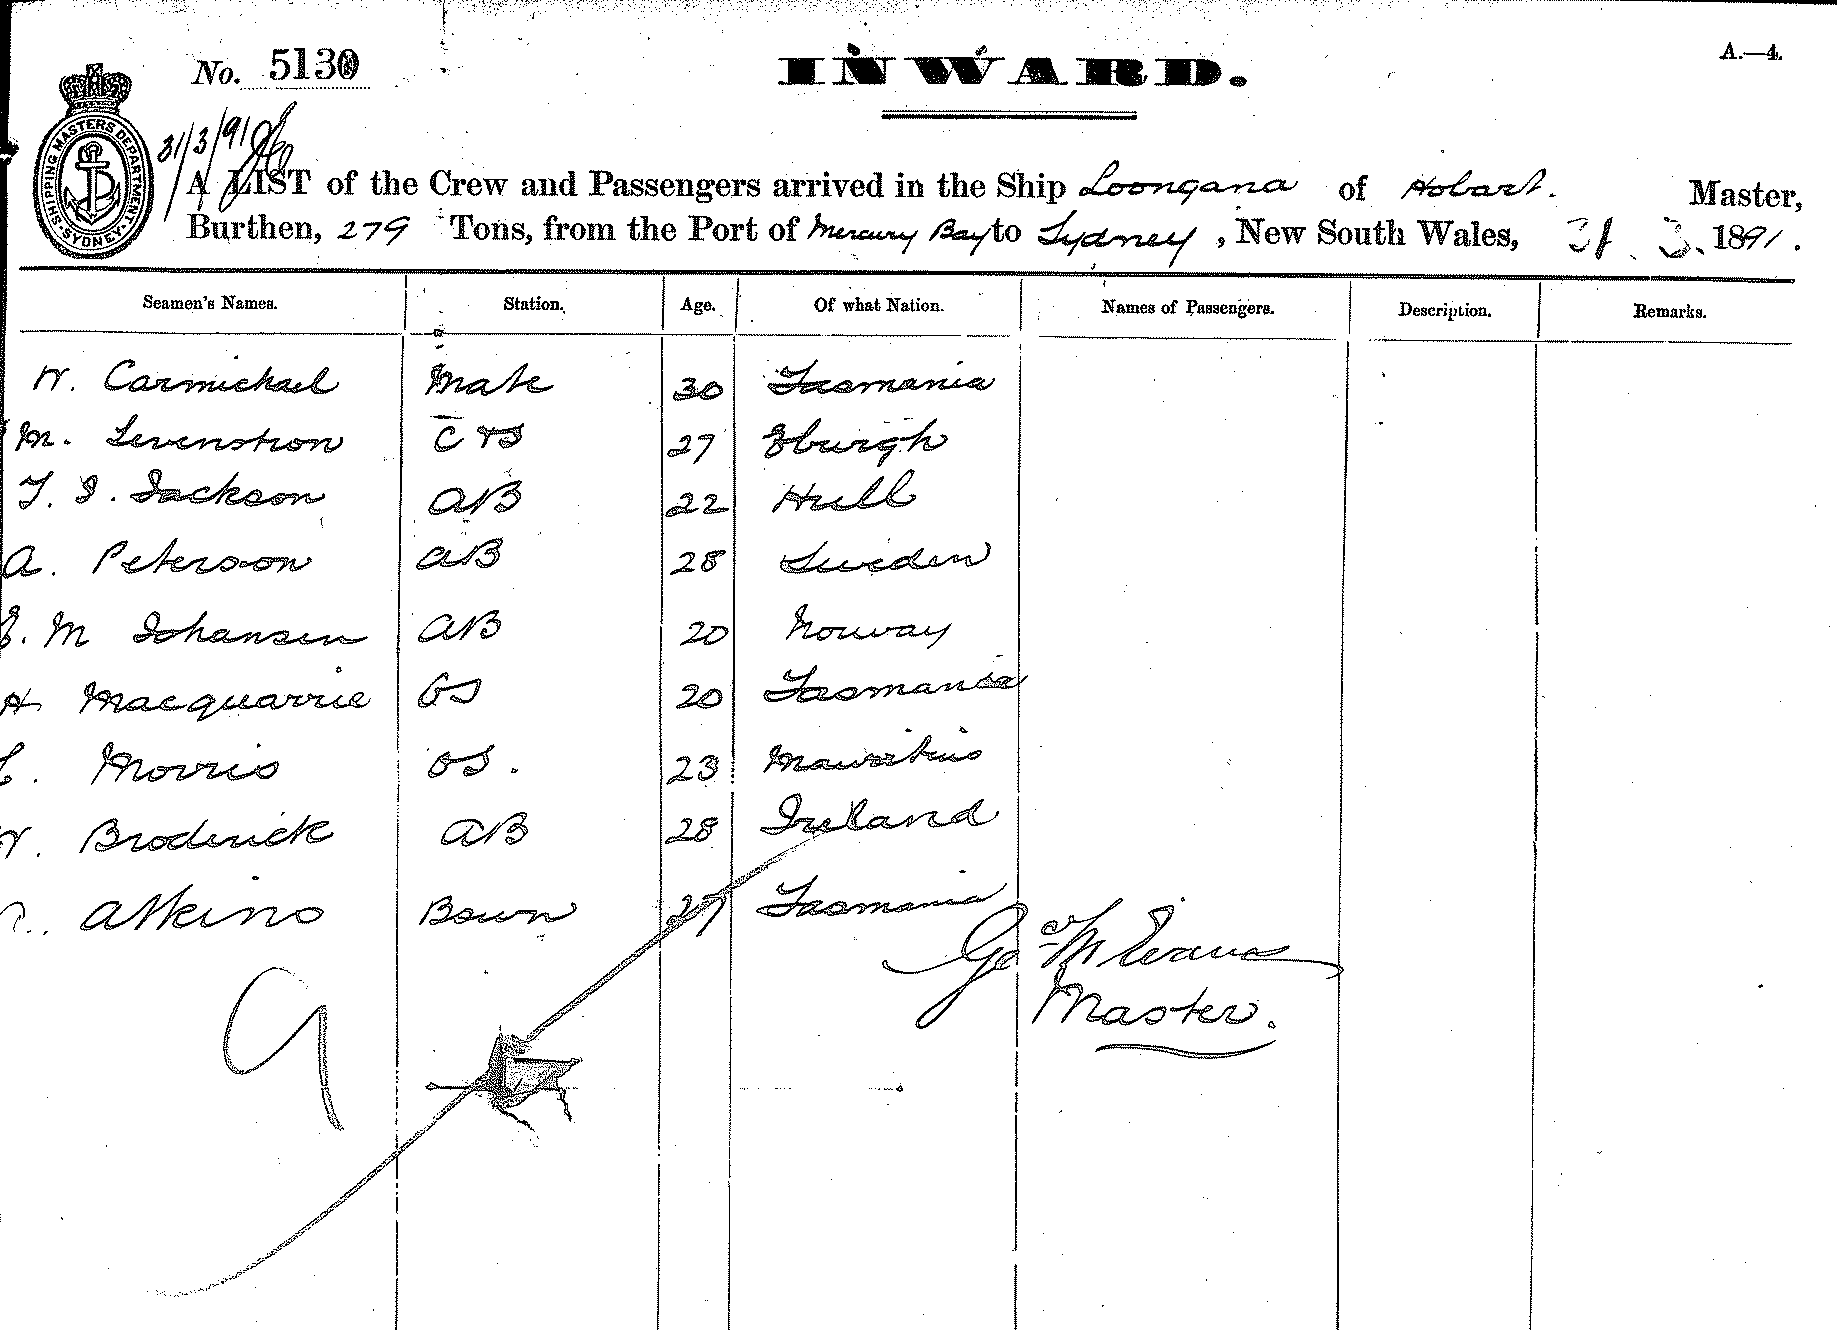 No. 5130 INWARD. A.—4.
SHIPPING MASTERS DEPARTMENT SYDNEY
31/3/91
A LIST of the Crew and Passengers arrived in the Ship Loongana of Hobart. Master,
Burthen, 279 Tons, from the Port of Mercury Bay to Sydney, New South Wales, 31. 3. 1891.
Seamen's Names. Station. Age. Of what Nation. Names of Passengers. Description. Remarks.
W. Carmichael Mate 30 Tasmania
M. Levenstron C & S 27 Eburgh
T. J. Jackson AB 22 Hull
A. Peterson AB 28 Sweden
E. M Johansen AB 20 Norway
H Macquarrie OS 20 Tasmania
Morris OS. 23 Mauritius
W. Broderick AB 28 Ireland
Atkins Bswn 27 Tasmania
Geo M Evans
Master.
9